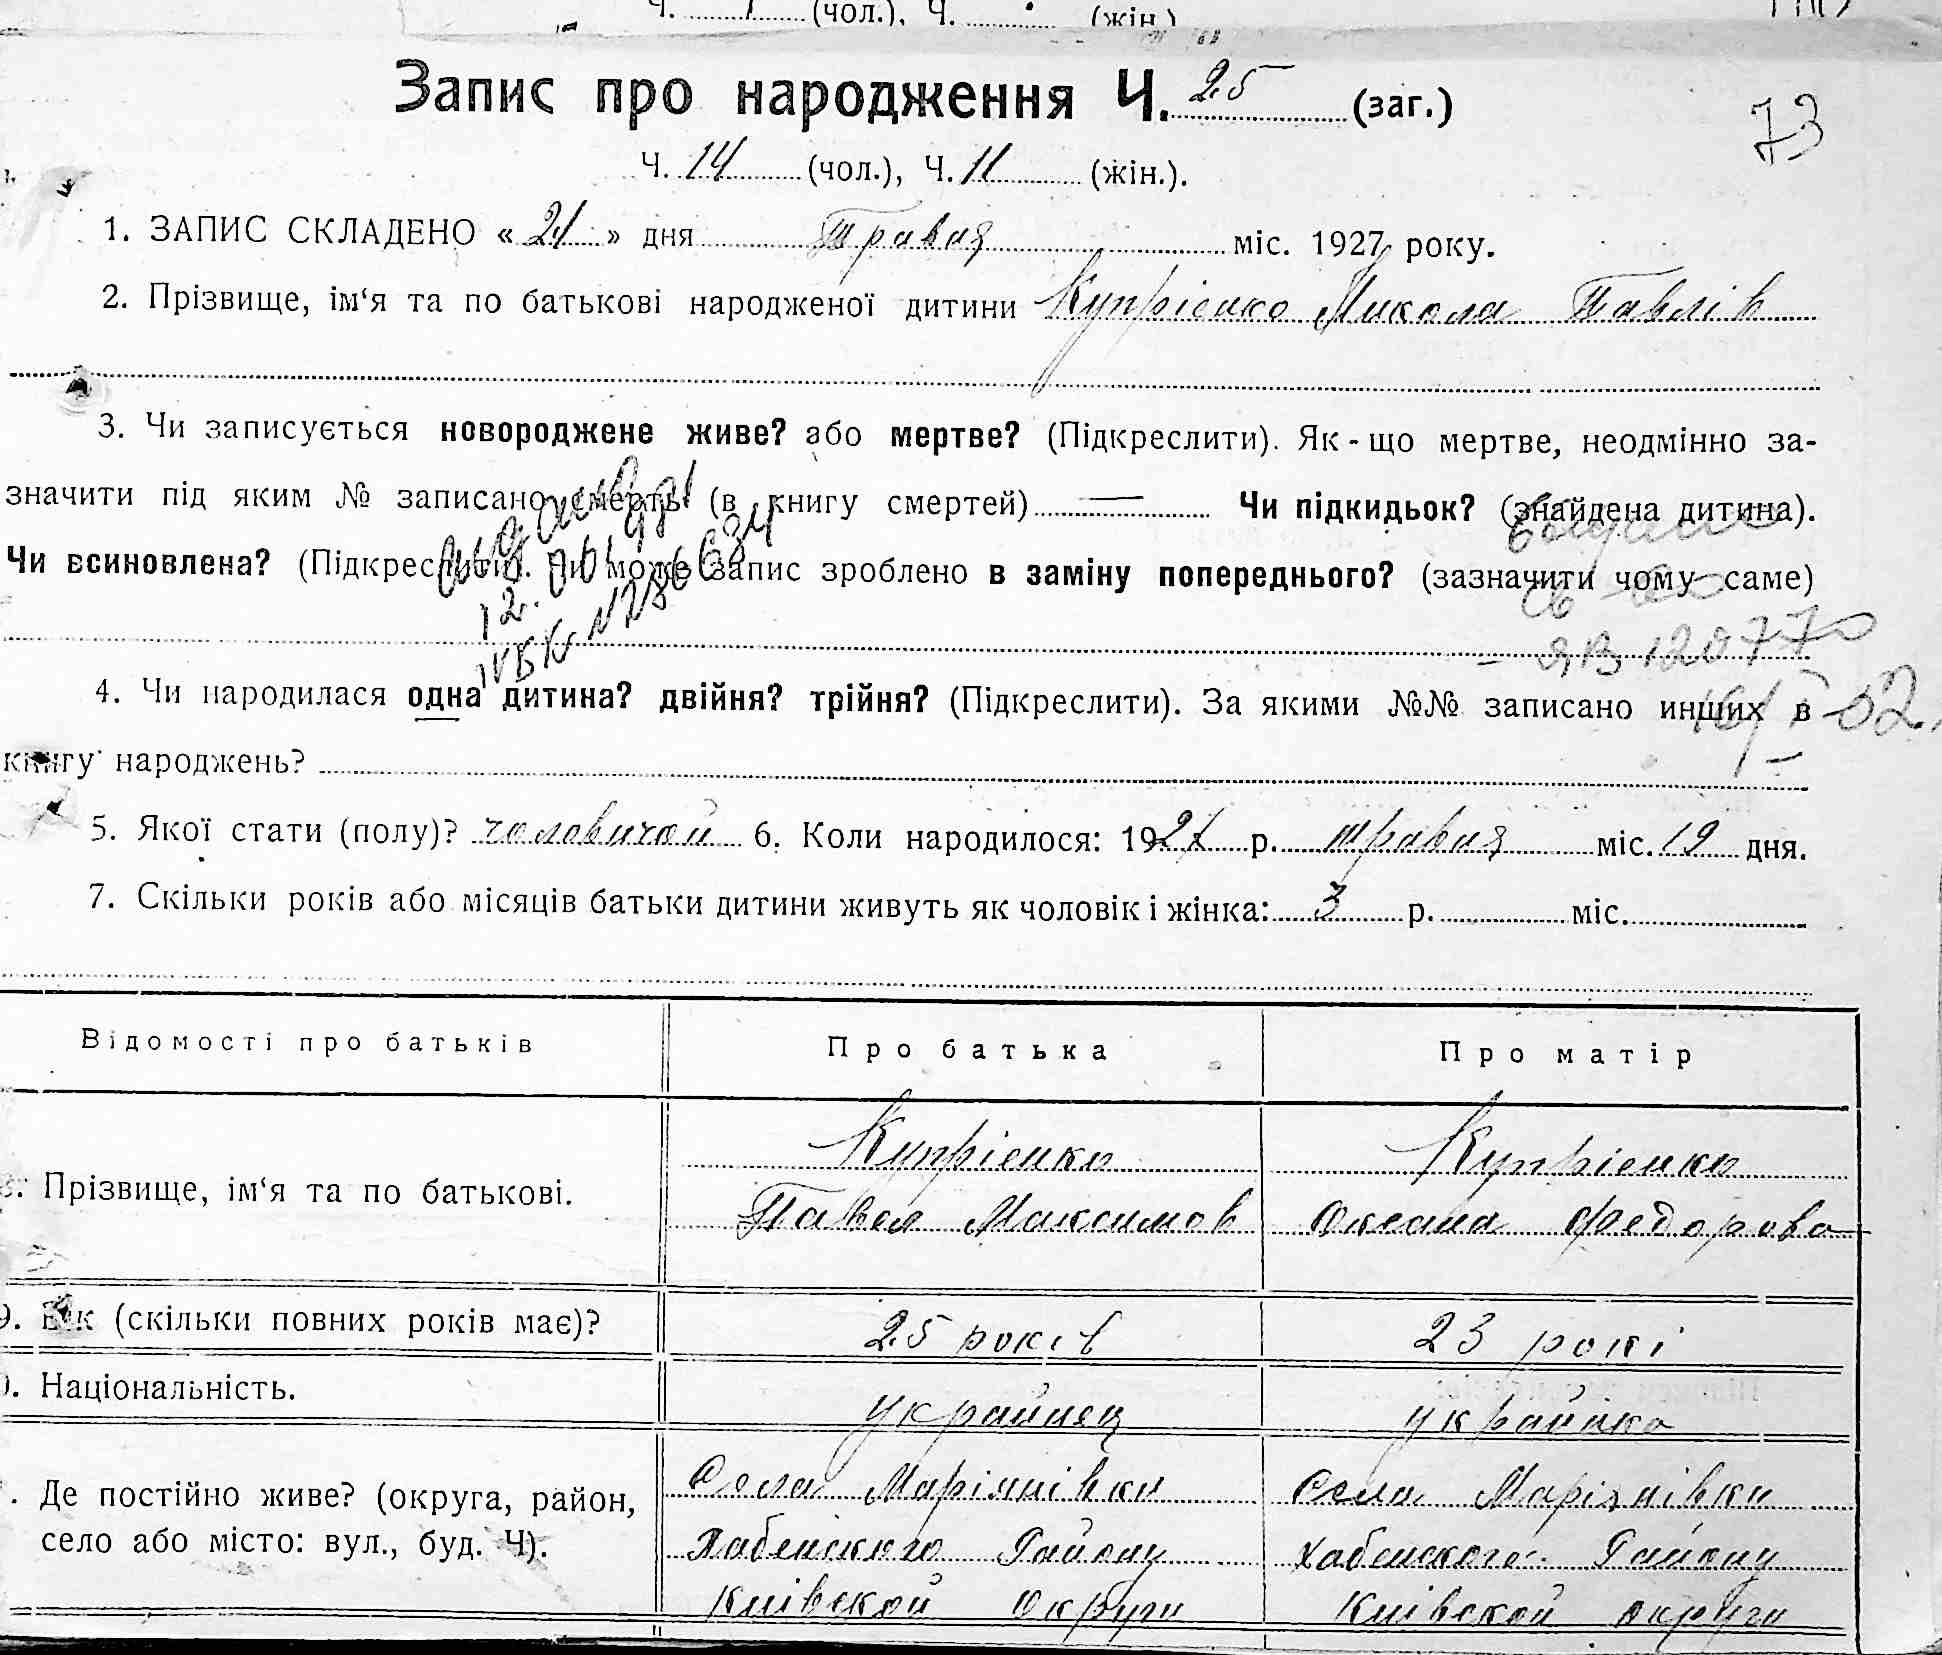 Ч. (чол.), Ч. (жін.)
Запис про народження Ч. 25 (заг.)
73
Ч. 14 (чол.), Ч. 11 (жін.).
1. ЗАПИС СКЛАДЕНО « 21 » дня Травня міс. 1927 року.
2. Прізвище, ім‘я та по батькові народженої дитини Купрієнко Микола Павлів
3. Чи записується новороджене живе? або мертве? (Підкреслити). Як-що мертве, неодмінно за-
значити під яким № записано смерть (в книгу смертей) Чи підкидьок? (знайдена дитина).
Чи всиновлена? (Підкреслити). Чи може запис зроблено в заміну попереднього? (зазначити чому саме)
ЯВ 120770
4. Чи народилася одна дитина? двійня? трійня? (Підкреслити). За якими №№ записано инших в
книгу народжень?
5. Якої стати (полу)? чоловичой 6. Коли народилося: 1927 р. травня міс. 19 дня.
7. Скільки років або місяців батьки дитини живуть як чоловік і жінка: 3 р. міс.
Відомості про батьків Про батька Про матір
Прізвище, ім‘я та по батькові. Купрієнко Купрієнко
Павел Максимов Оксана Федорова
9. Вік (скільки повних років має)? 25 років 23 рокі
Національність. украйнец украйнка
Де постійно живе? (округа, район, село або місто: вул., буд. Ч). Села Маріянівки Села Маріянівки
Хабенского Району Хабенского Району
Київской округи Київской округи